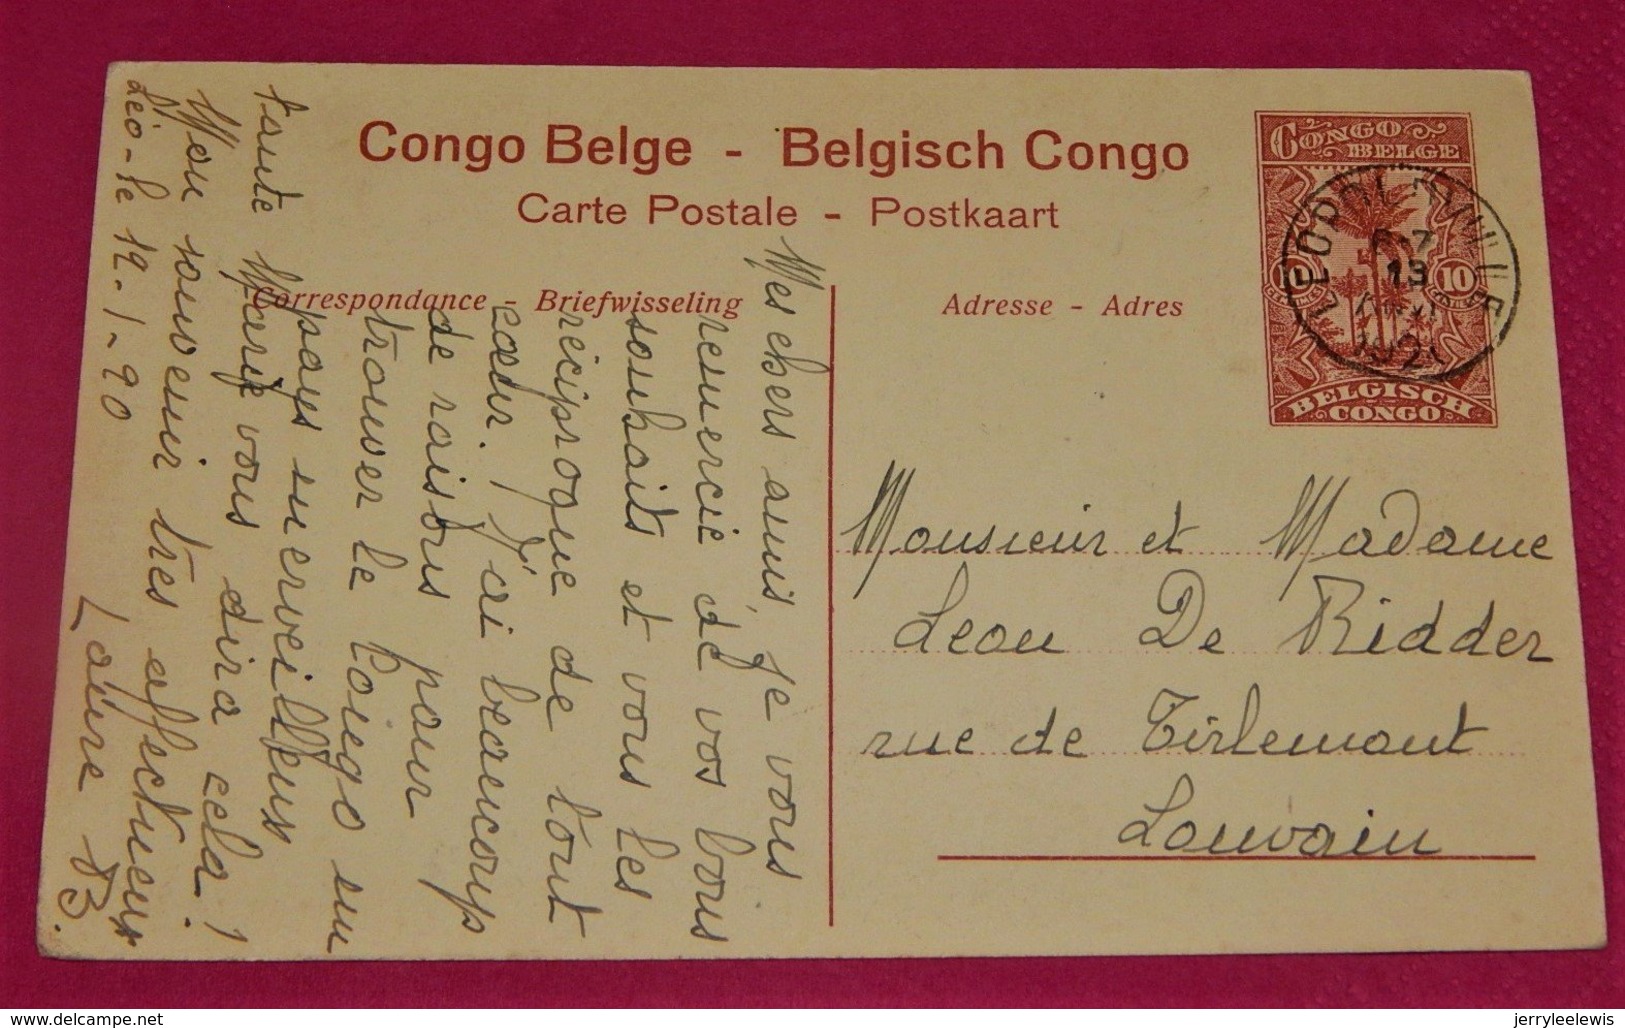 Congo Belge - Belgisch Congo
Carte Postale - Postkaart
Correspondance - Briefwisseling
Adresse - Adres
CONGO
BELGE
10
10
BELGISCH
CONGO
LEOPOLDVILLE
13
1921
Mes chers amis, je vous
remercie de vos bons
souhaits et vous les
réciproque de tout
cœur. J'ai beaucoup
de raisons pour
trouver le Congo un
pays merveilleux
tante Marie vous dira cela!
Mon souvenir très affectueux
Laure B.
Léo - le 12-1-20
Monsieur et Madame
Leon De Ridder
rue de Tirlemont
Louvain
delcampe.net
jerryleelewis